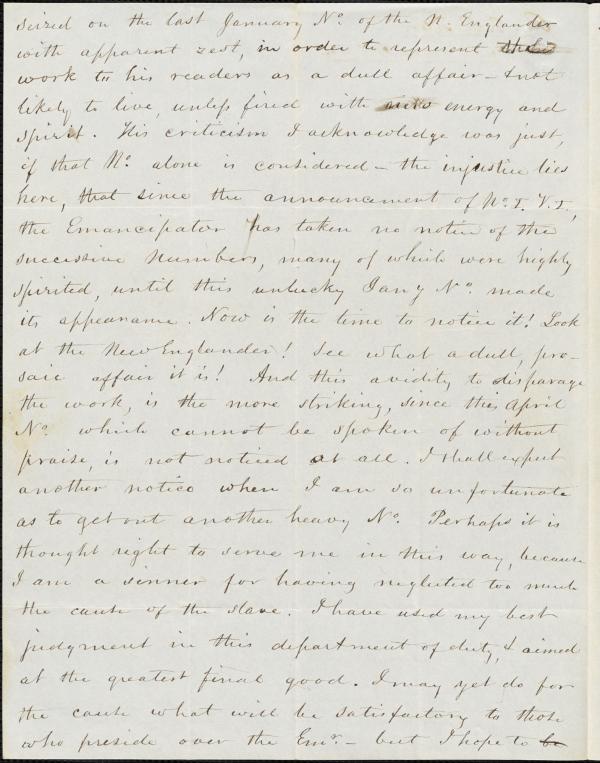 seized on the last January No. of the N. Englander
with apparent zest, in order to represent
work to his readers as a dull affair – & not
likely to live, unless fired with energy and
spirit. His criticism I acknowledge was just,
if that No. alone is considered – the injustice lies
here, that since the announcement of No. I. V. I.,
the Emancipator has taken no notice of the
successive Numbers, many of which were highly
spirited, until this unlucky Jany No. made
its appearance. Now is the time to notice it! Look
at the New Englander! See what a dull, pro-
saic affair it is! And this avidity to disparage
the work, is the more striking, since this April
No. which cannot be spoken of without
praise, is not noticed at all. I shall expect
another notice when I am so unfortunate
as to get out another heavy No. Perhaps it is
thought right to serve me in this way, because
I am a sinner for having neglected too much
the cause of the slave. I have used my best
judgment in this department of duty, & aimed
at the greatest final good. I may yet do for
the cause what will be satisfactory to those
who preside over the Emr. – but I hope to be